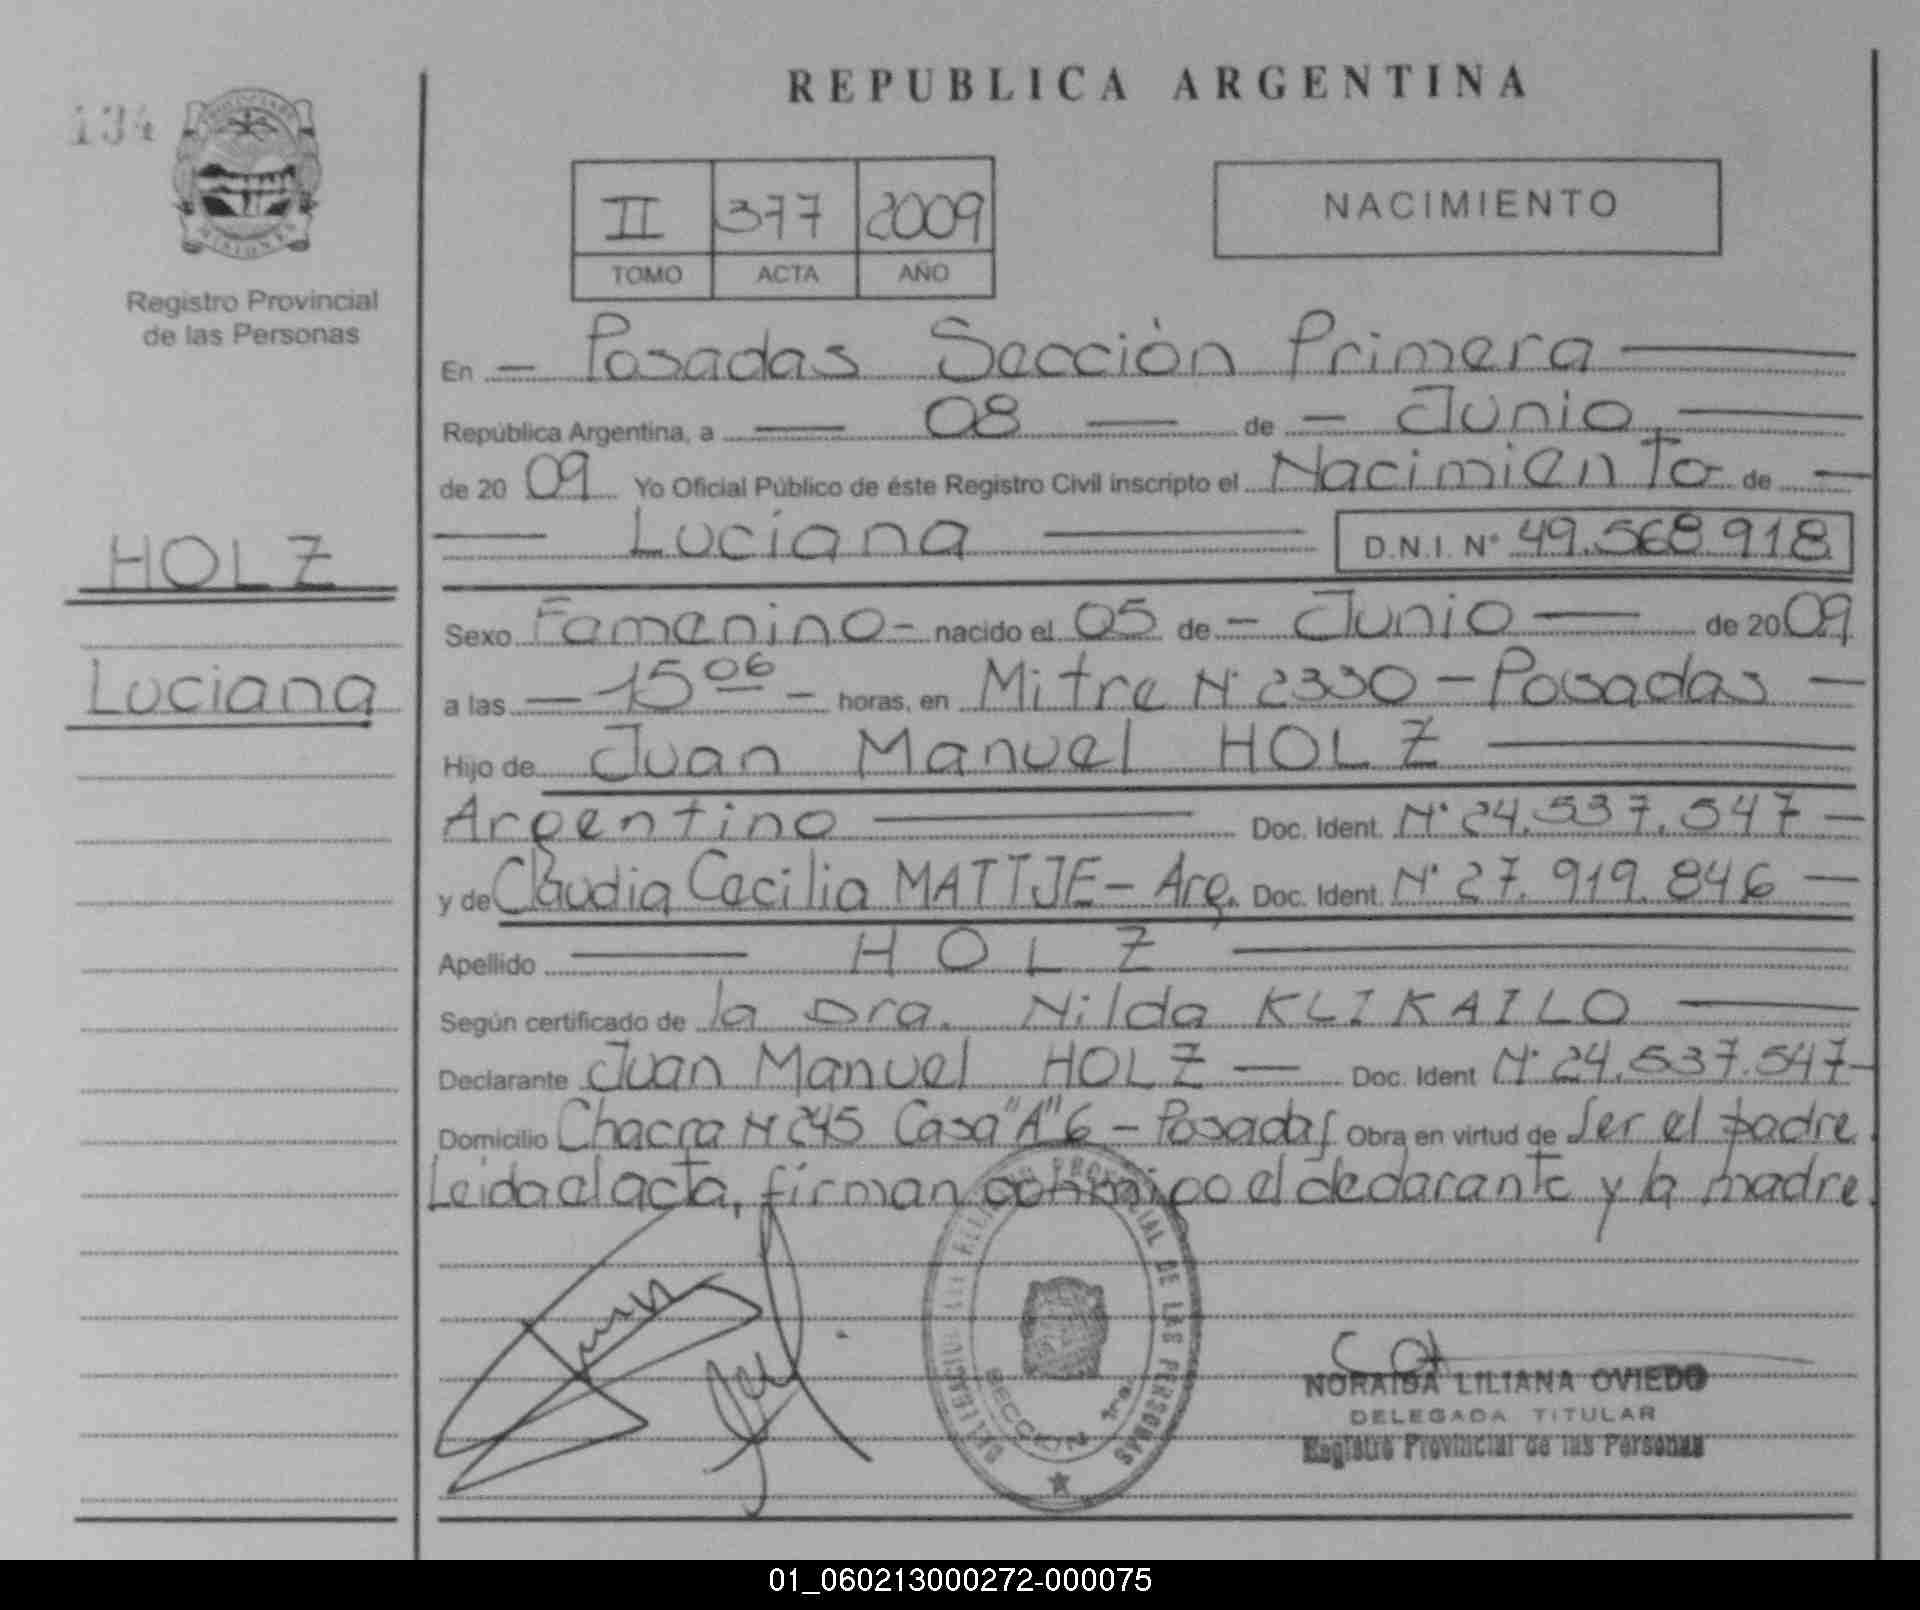 REPUBLICA ARGENTINA
134
PROVINCIA DE MISIONES
Registro Provincial
de las Personas
II 377 2009
TOMO ACTA AÑO
NACIMIENTO
HOLZ
Luciana
En — Posadas Sección Primera —
República Argentina, a — 08 — de — Junio —
de 20 09 Yo Oficial Público de éste Registro Civil inscripto el Nacimiento de —
— Luciana — D.N.I. N° 49.568.918
Sexo Femenino - nacido el 05 de - Junio — de 20 09
a las — 15 06 — horas, en Mitre N° 2330 - Posadas —
Hijo de Juan Manuel HOLZ —
Argentino — Doc. Ident. N° 24.537.547 —
y de Claudia Cecilia MATTJE - Arg. Doc. Ident. N° 27.919.846 —
Apellido — HOLZ —
Según certificado de la Dra. Nilda KLIKAILO —
Declarante Juan Manuel HOLZ — Doc. Ident N° 24.537.547 -
Domicilio Chacra N° 245 Casa "A" 6 - Posadas Obra en virtud de Ser el padre.
Leida el acta, firman conmigo el declarante y la madre.
SECCION 1ra.
NORAIDA LILIANA OVIEDO
DELEGADA TITULAR
Registro Provincial de las Personas
01_060213000272-000075